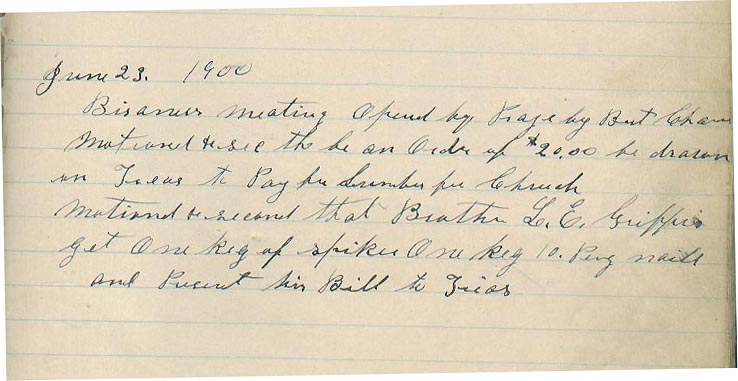 June 23. 1900
Bisaness Meating Opend by Praye by But Cham
Motiond & sec th be an Order of $20.00 be drawn
on Treas to Pay for Lumber for Chruch
Motiond & second that Brother L. E. Griffis
get One keg of spikes One keg 10. Peny nails
and Present his Bill to Treas